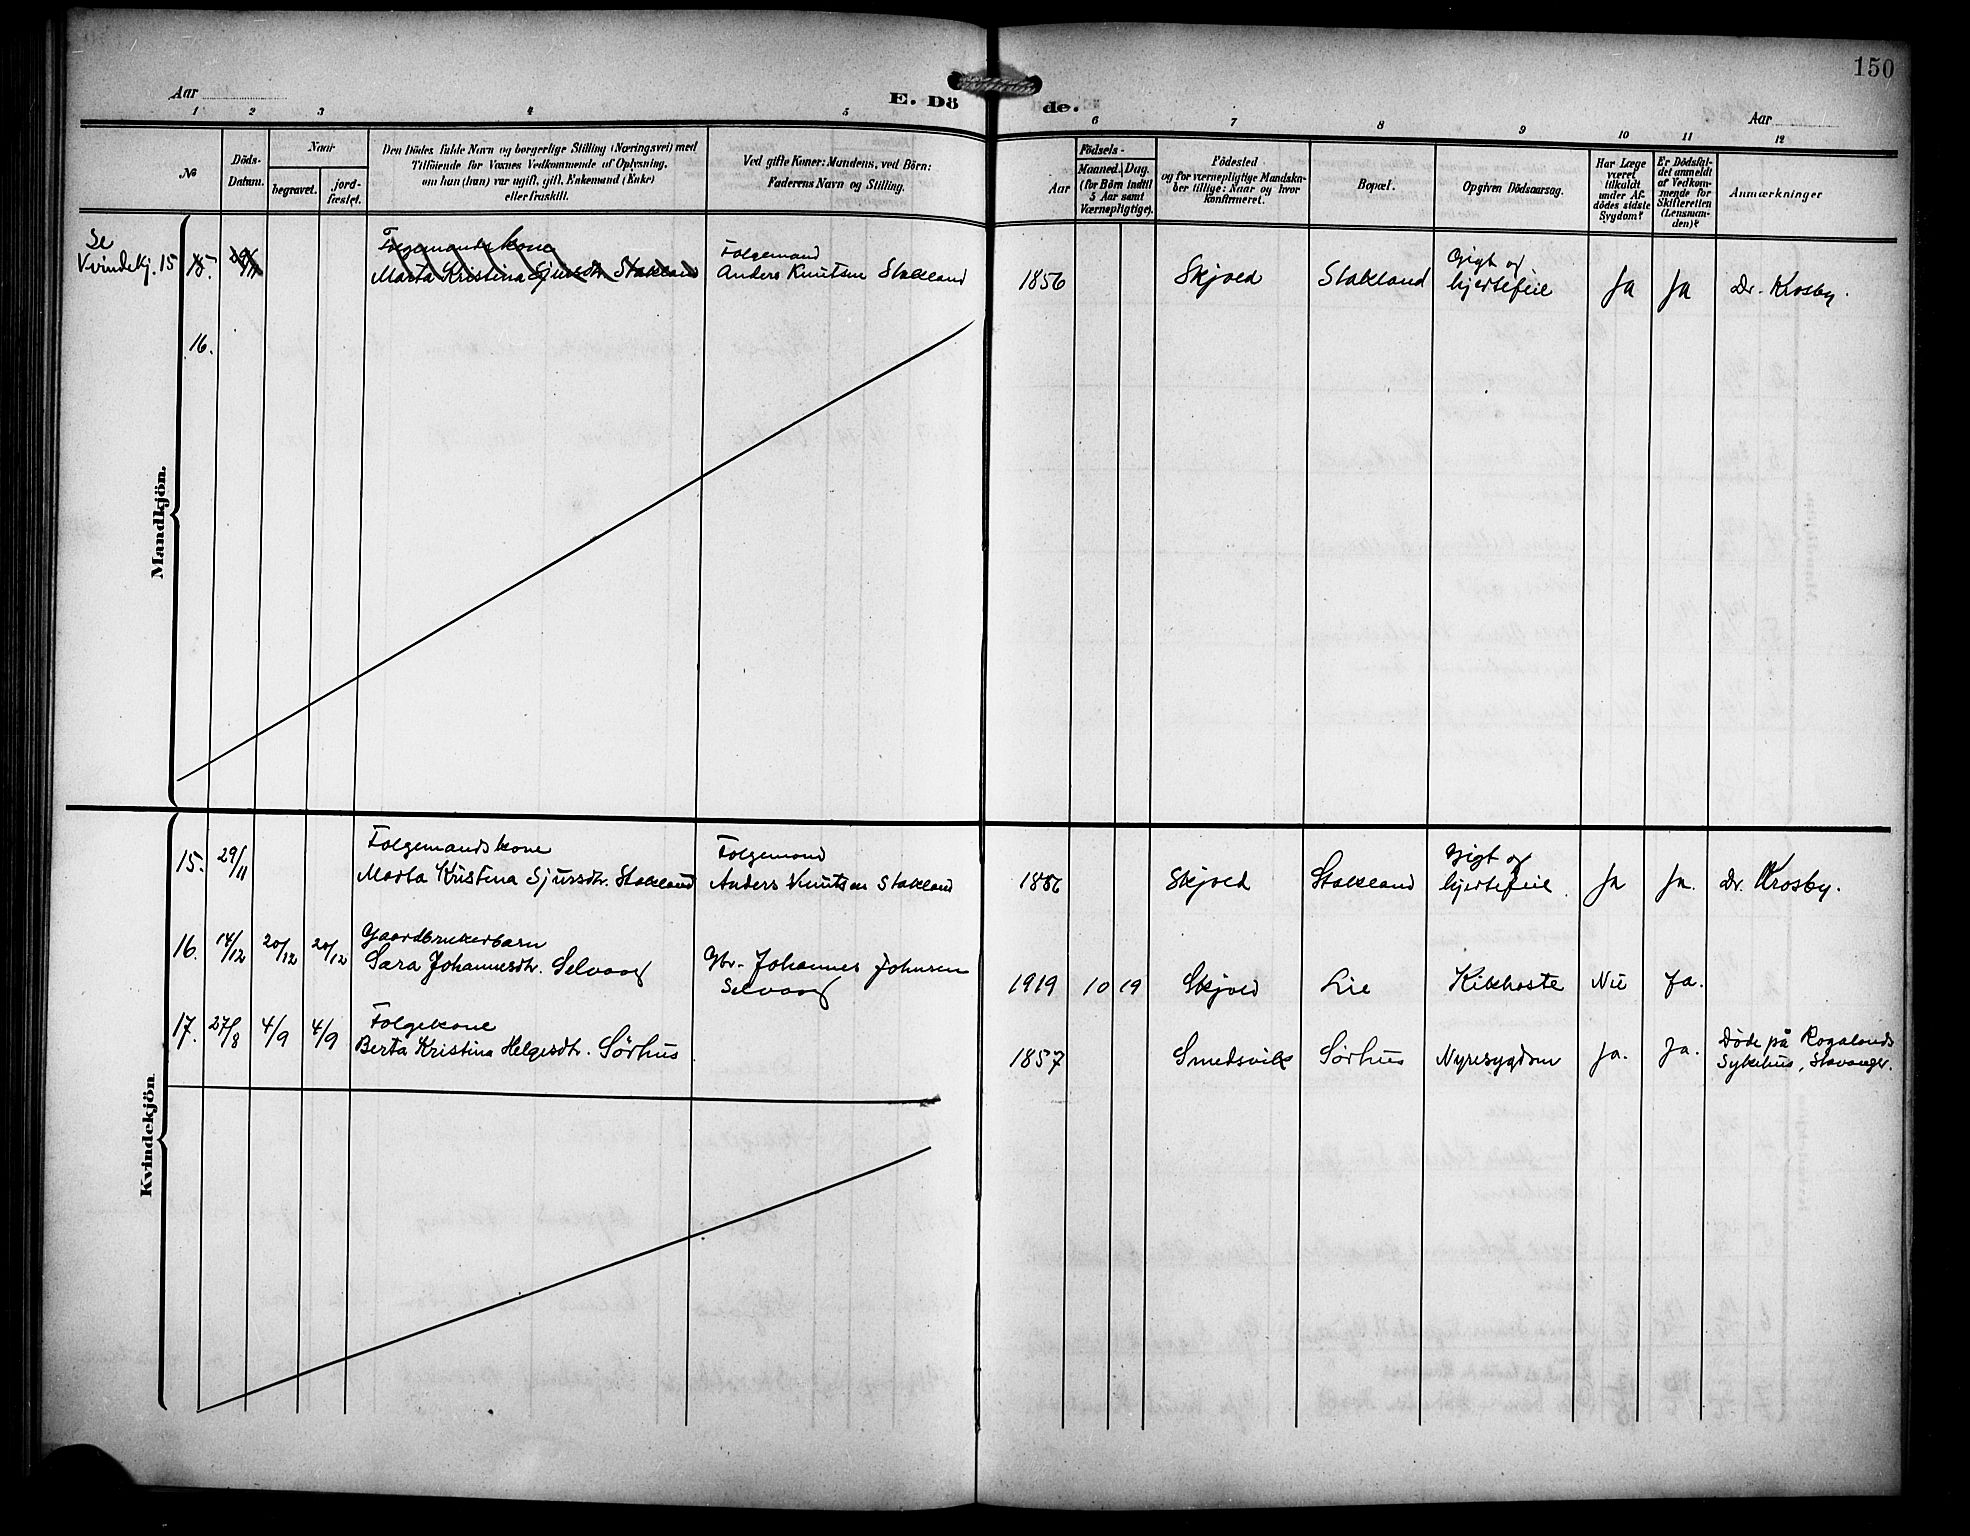 150
Aar
E. Dö de.
Aar
1 2 3 4 5 6 7 8 9 10 11 12
No
Döds-
Datum.
Naar
begravet.
jord-
fæstet.
Den Dödes fulde Navn og borgerlige Stilling (Næringsvei) med
Tilföiende for Voxnes Vedkommende af Oplysning,
om han (hun) var ugift, gift, Enkemand (Enke)
eller fraskilt.
Ved gifte Koner: Mandens, ved Börn:
Faderens Navn og Stilling.
Födsels-
Aar
Maaned. Dag.
(for Börn indtil
5 Aar samt
Værnepligtige).
Födested
og for værnepligtige Mandska-
ber tillige: Naar og hvor
konfirmeret.
Bopæl.
Opgiven Dödsaarsag.
Har Læge
været
tilkaldt
under Af-
dödes sidste
Sygdom?
Er Dödsfal-
det anmeldt
af Vedkom-
mende for
Skifteretten
(Lensman-
den)?
Anmærkninger
Mandkjön.
Se
Kvindekj. 15
15. 29/11
Folgemandskone
Marta Kristina Sjursdtr. Stakland
Folgemand
Anders Knutsen Stakland
1856 Skjold Stakland
Gigt og
hjertefeil
Ja Ja Dr. Krosby.
16.
Kvindekjön
15. 29/11
Folgemandskone
Marta Kristina Sjursdtr. Stakland
Folgemand
Anders Knutsen Stakland
1856 Skjold Stakland
Gigt og
hjertefeil.
Ja Ja. Dr. Krosby.
16. 14/12 20/12 20/12
Gaardbrukerbarn
Sara Johannesdtr. Selvaag
Gbr. Johannes Johnsen
Selvaag
1919 10 19 Skjold Lie Kikhoste Nei Ja.
17. 27/8 4/9 4/9
Folgekone
Berta Kristina Helgesdtr. Sørhus
1857 Smedsvik Sørhus Nyresygdom Ja. Ja.
Døde på Rogalands
Sykehus, Stavanger.